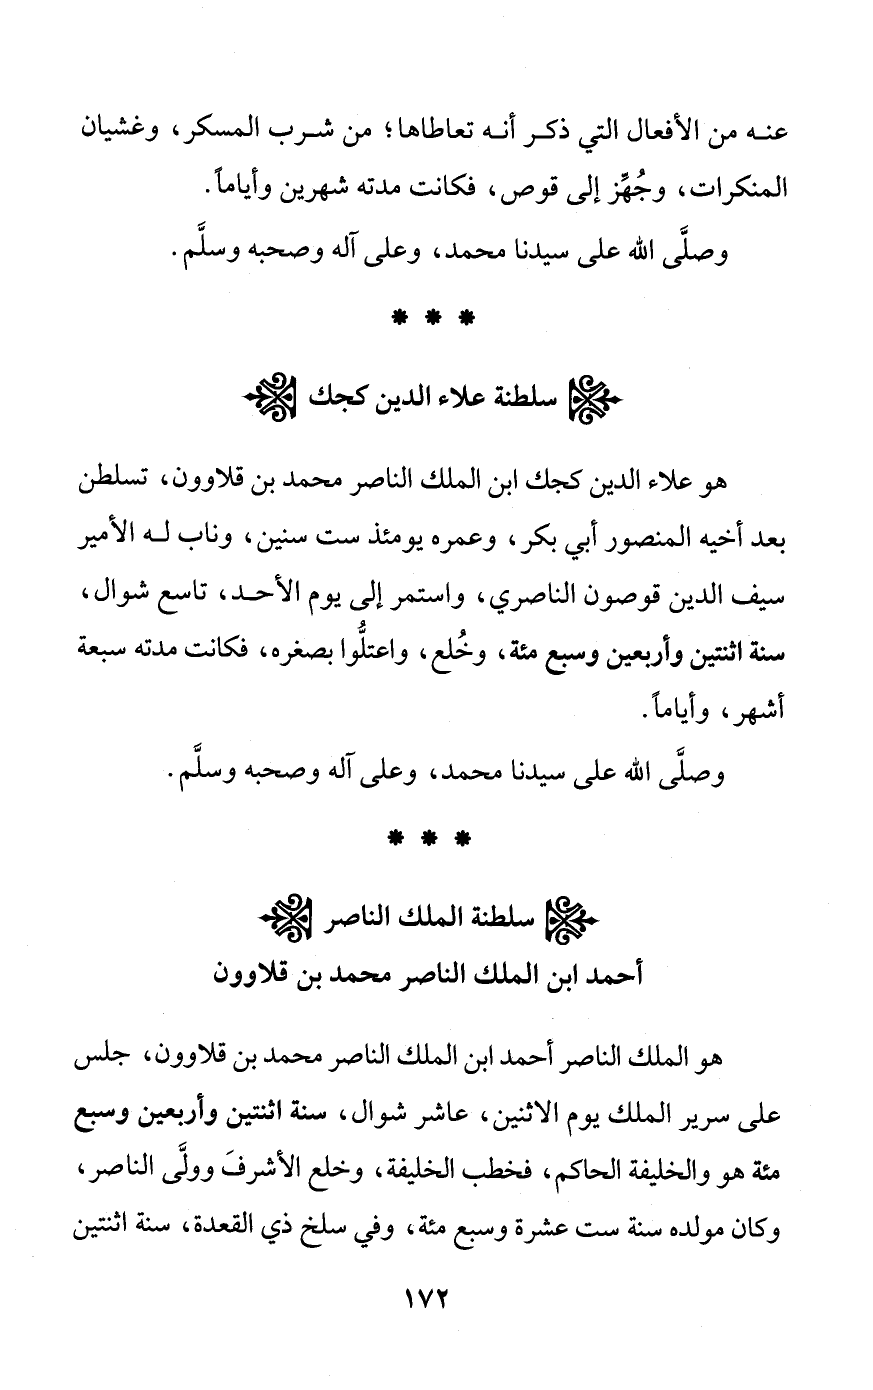 عنـه من الأفعال التي ذكـر أنـه تعاطاها؛ من شـرب المسكر، وغشيان
المنكرات، وجُهِّز إلى قوص، فكانت مدته شهرين وأياماً.
وصلَّى الله على سيدنا محمد، وعلى آله وصحبه وسلَّم.
* * *
سلطنة علاء الدين كجك
هو علاء الدين كجك ابن الملك الناصر محمد بن قلاوون، تسلطن
بعد أخيه المنصور أبي بكر، وعمره يومئذ ست سنين، وناب لـه الأمير
سيف الدين قوصون الناصري، واستمر إلى يوم الأحـد، تاسع شوال،
سنة اثنتين وأربعين وسبع مئة، وخُلع، واعتلُّوا بصغره، فكانت مدته سبعة
أشهر، وأياماً.
وصلَّى الله على سيدنا محمد، وعلى آله وصحبه وسلَّم.
* * *
سلطنة الملك الناصر
أحمد ابن الملك الناصر محمد بن قلاوون
هو الملك الناصر أحمد ابن الملك الناصر محمد بن قلاوون، جلس
على سرير الملك يوم الاثنين، عاشر شوال، سنة اثنتين وأربعين وسبع
مئة هو والخليفة الحاكم، فخطب الخليفة، وخلع الأشرفَ وولَّى الناصر،
وكان مولده سنة ست عشرة وسبع مئة، وفي سلخ ذي القعدة، سنة اثنتين
١٧٢